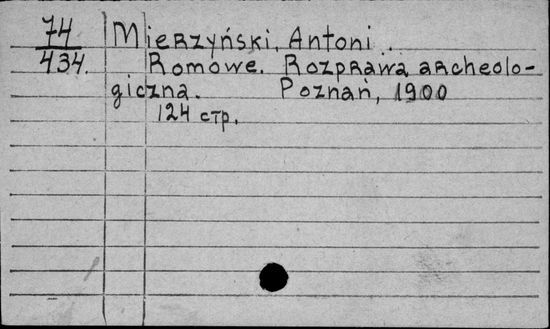 74 Mierzyński, Antoni.
434. Romowe. Rozprawa archeolo-
giczna. Poznań, 1900
124 стр.